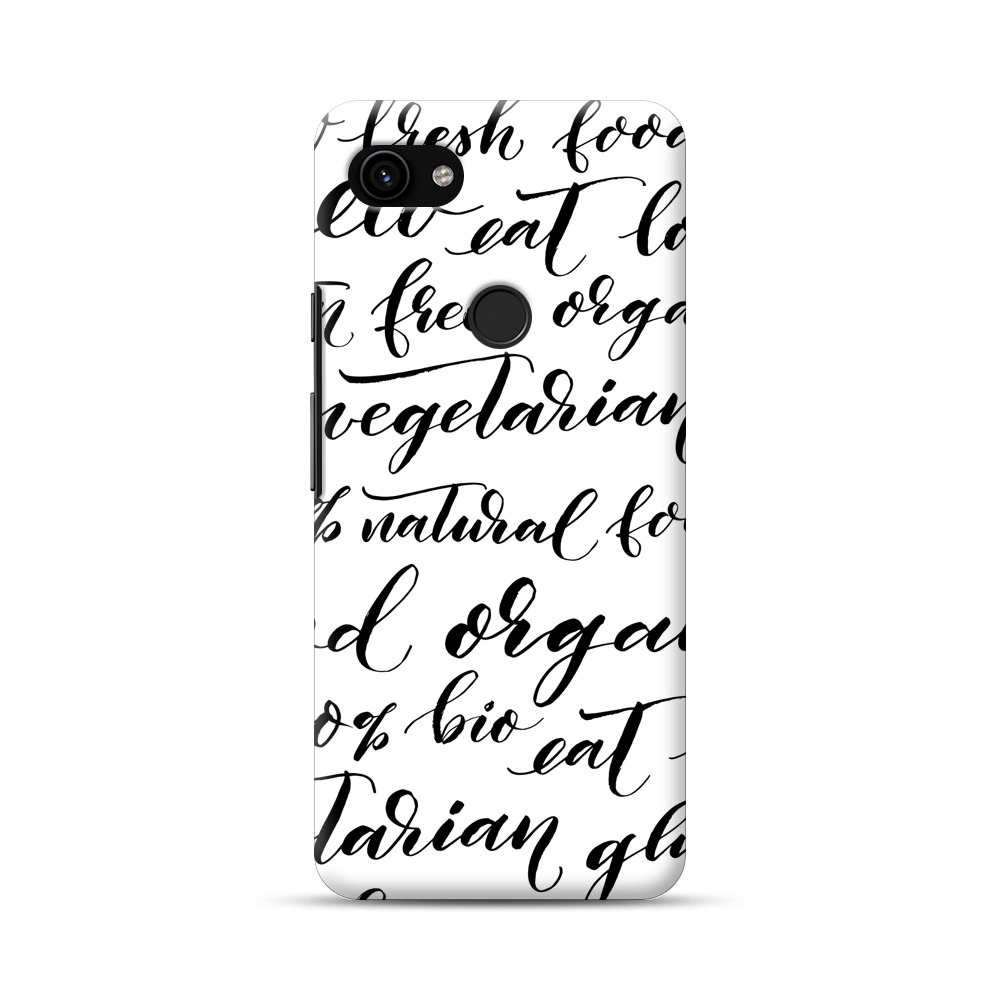 fresh food
eat lo
n free orga
vegetarian
% natural fo
d organ
0% bio eat
tarian glu